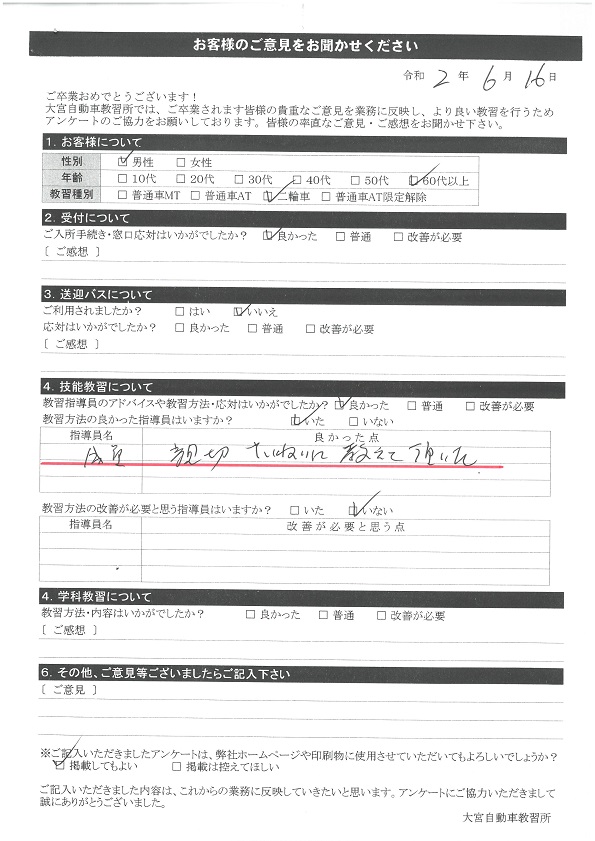 お客様のご意見をお聞かせください
令和 2 年 6 月 16 日
ご卒業おめでとうございます！
大宮自動車教習所では、ご卒業されます皆様の貴重なご意見を業務に反映し、より良い教習を行うため
アンケートのご協力をお願いしております。皆様の率直なご意見・ご感想をお聞かせ下さい。
1. お客様について
性別 ☑男性 □女性
年齢 □10代 □20代 □30代 □40代 □50代 ☑60代以上
教習種別 □普通車MT □普通車AT ☑二輪車 □普通車AT限定解除
2. 受付について
ご入所手続き・窓口応対はいかがでしたか？ ☑良かった □普通 □改善が必要
〔 ご感想 〕
3. 送迎バスについて
ご利用されましたか？ □はい ☑いいえ
応対はいかがでしたか？ □良かった □普通 □改善が必要
〔 ご感想 〕
4. 技能教習について
教習指導員のアドバイスや教習方法・応対はいかがでしたか？ ☑良かった □普通 □改善が必要
教習方法の良かった指導員はいますか？ ☑いた □いない
指導員名 良かった点
親切 ていねいに 教えて 頂いた
教習方法の改善が必要と思う指導員はいますか？ □いた ☑いない
指導員名 改善が必要と思う点
4. 学科教習について
教習方法・内容はいかがでしたか？ □良かった □普通 □改善が必要
〔 ご感想 〕
6. その他、ご意見等ございましたらご記入下さい
〔 ご意見 〕
※ご記入いただきましたアンケートは、弊社ホームページや印刷物に使用させていただいてもよろしいでしょうか？
☑掲載してもよい □掲載は控えてほしい
ご記入いただきました内容は、これからの業務に反映していきたいと思います。アンケートにご協力いただきまして
誠にありがとうございました。
大宮自動車教習所